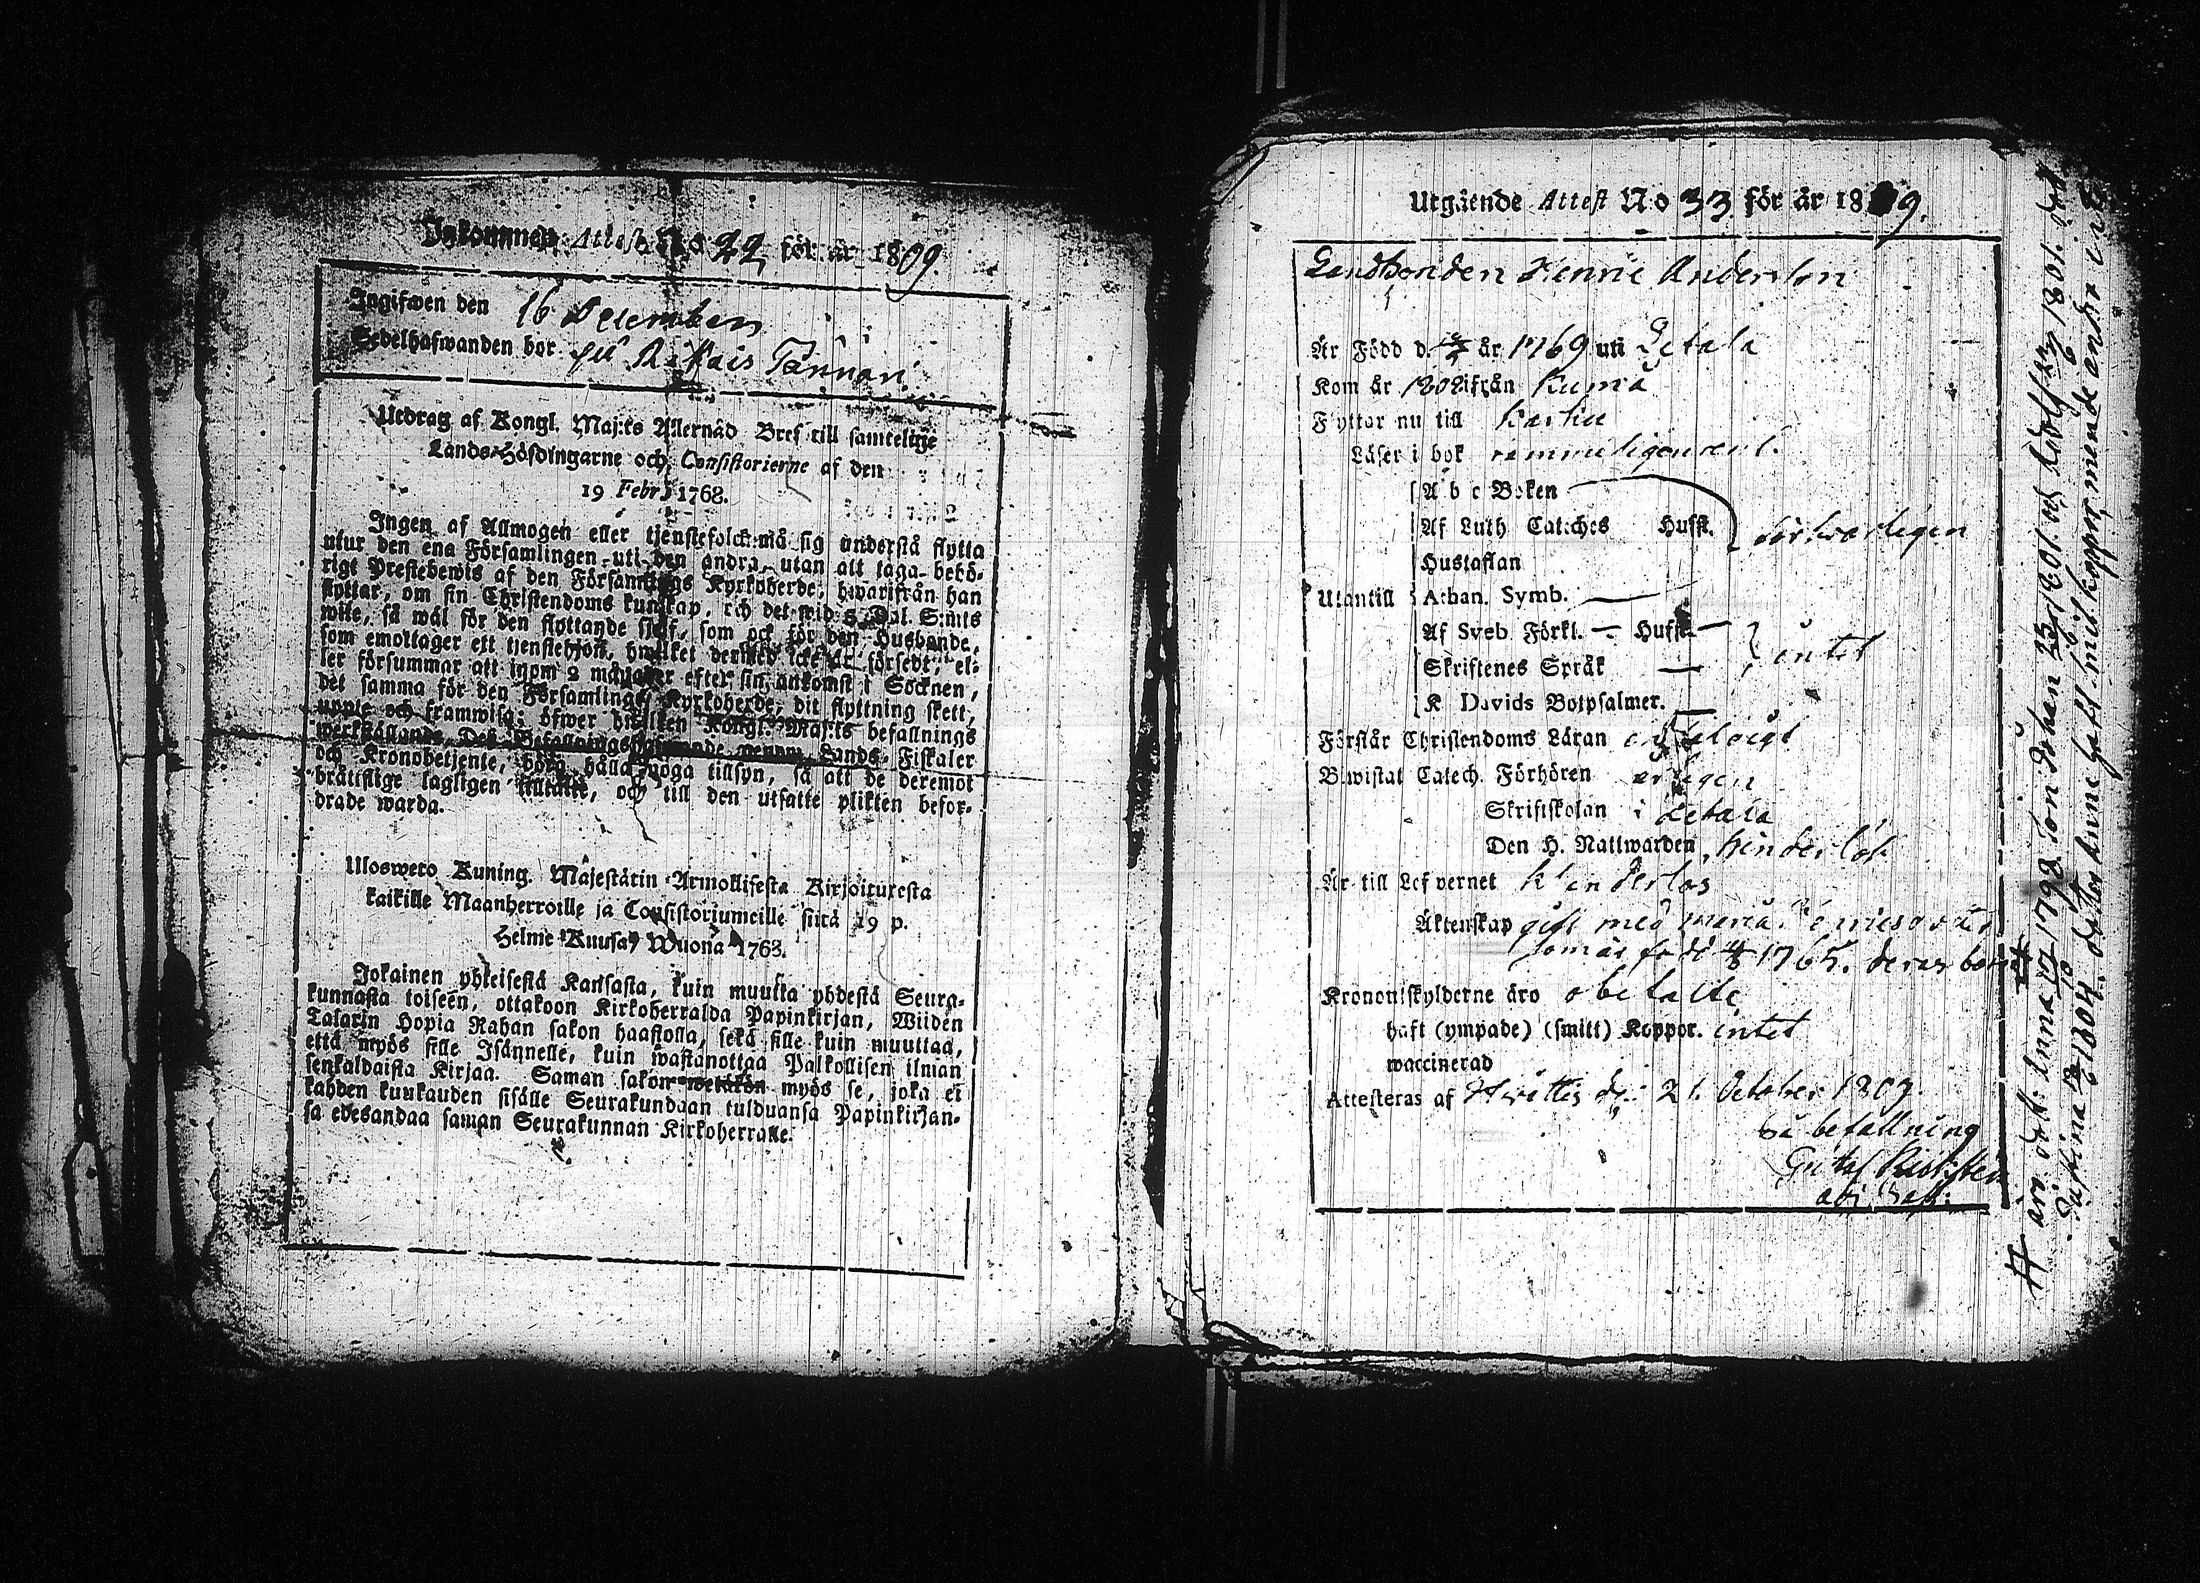 Inkommen Attest No 22 för år 1809.
Ingifwen den 16 December
Sedelhafwanden bor på
Utdrag af Kongl. Maj:ts Allernåd Bref till samtelige
Lands-Höfdingarne och Consistorierne af den
19 Febr. 1768.
Ingen af Allmogen eller tjenstefolck må sig understå flytta
utur den ena Församlingen uti den andra, utan att taga behö-
rigt Prestebewis af den Församlings Kyrkoherde, hwarifrån han
flyttar, om sin Christendoms kunskap, och det wid 5 Dal. S:mts
wite, så wäl för den flyttande sjelf, som ock för den Husbonde,
som emottager ett tjenstehjon, hwilket dermed icke är försedt, el-
ler försummar att inom 2 månader efter sin ankomst i Socknen,
det samma för den Församlings Kyrkoherde, dit flyttning skett,
uppte och framwisa; öfwer hwilken Kongl. Maj:ts befallnings
werkställande, Des Befallningshafwande genom Lands-Fiskaler
och Kronobetjente, böra hålla noga tillsyn, så att de deremot
bråttslige lagligen tilltalte, och till den utsatte plikten befor-
drade warda.
Ulosweto Kuning. Majestätin Armollisesta Kirjoituxesta
kaikille Maanherroille ja Consistoriumeille siitä 19 p.
Helme Kuusa, Wuona 1768.
Jokainen yhteisestä Kansasta, kuin muutta yhdestä Seura-
kunnasta toiseen, ottakoon Kirkoherralda Papinkirjan, Wiiden
Talarin Hopia Rahan sakon haastolla, sekä sille kuin muuttaa,
että myös sille Isännelle, kuin wastanottaa Palkollisen ilman
senkaldaista Kirjaa. Saman sakon wetäkön myös se, joka ei
kahden kuukauden sisälle Seurakundaan tulduansa Papinkirjan-
sa edesandaa saman Seurakunnan Kirkoherralle.
Utgående Attest No 33 för år 1809.
Landbonden Henric Andersson
Är Född d. år 1769 uti Letala
Kom år 1802 ifrån Kumå
Flyttar nu till Karku
Läser i bok
A b c Boken
Af Luth Cateches Husst. försvarligen
Hustaflan
Utantill Athan. Symb.
Af Sveb. Förkl. — Husst. — intet
Skriftenes Språk —
K Davids Botpsalmer. —
Förstår Christendoms Läran
Biwistat Catech. Förhören
Skriftskolan i Letala
Den H. Nattwarden hinderlös
Är till Lefvernet klanderlös
Äktenskap gift med Maria
som är född 1765. deras barn #
Kronoutskylderne äro obetalte
haft (ympade) (smitt) Koppor. intet
waccinerad
Attesteras af Hvittis d. 21. October 1809.
På befallning
Gustaf
# äro: dott: Anna 1798. Son Johan 1801. och Adolf 1801. dott
Justina 1804. dotter Anna haft, mit koppor, men de andre intet